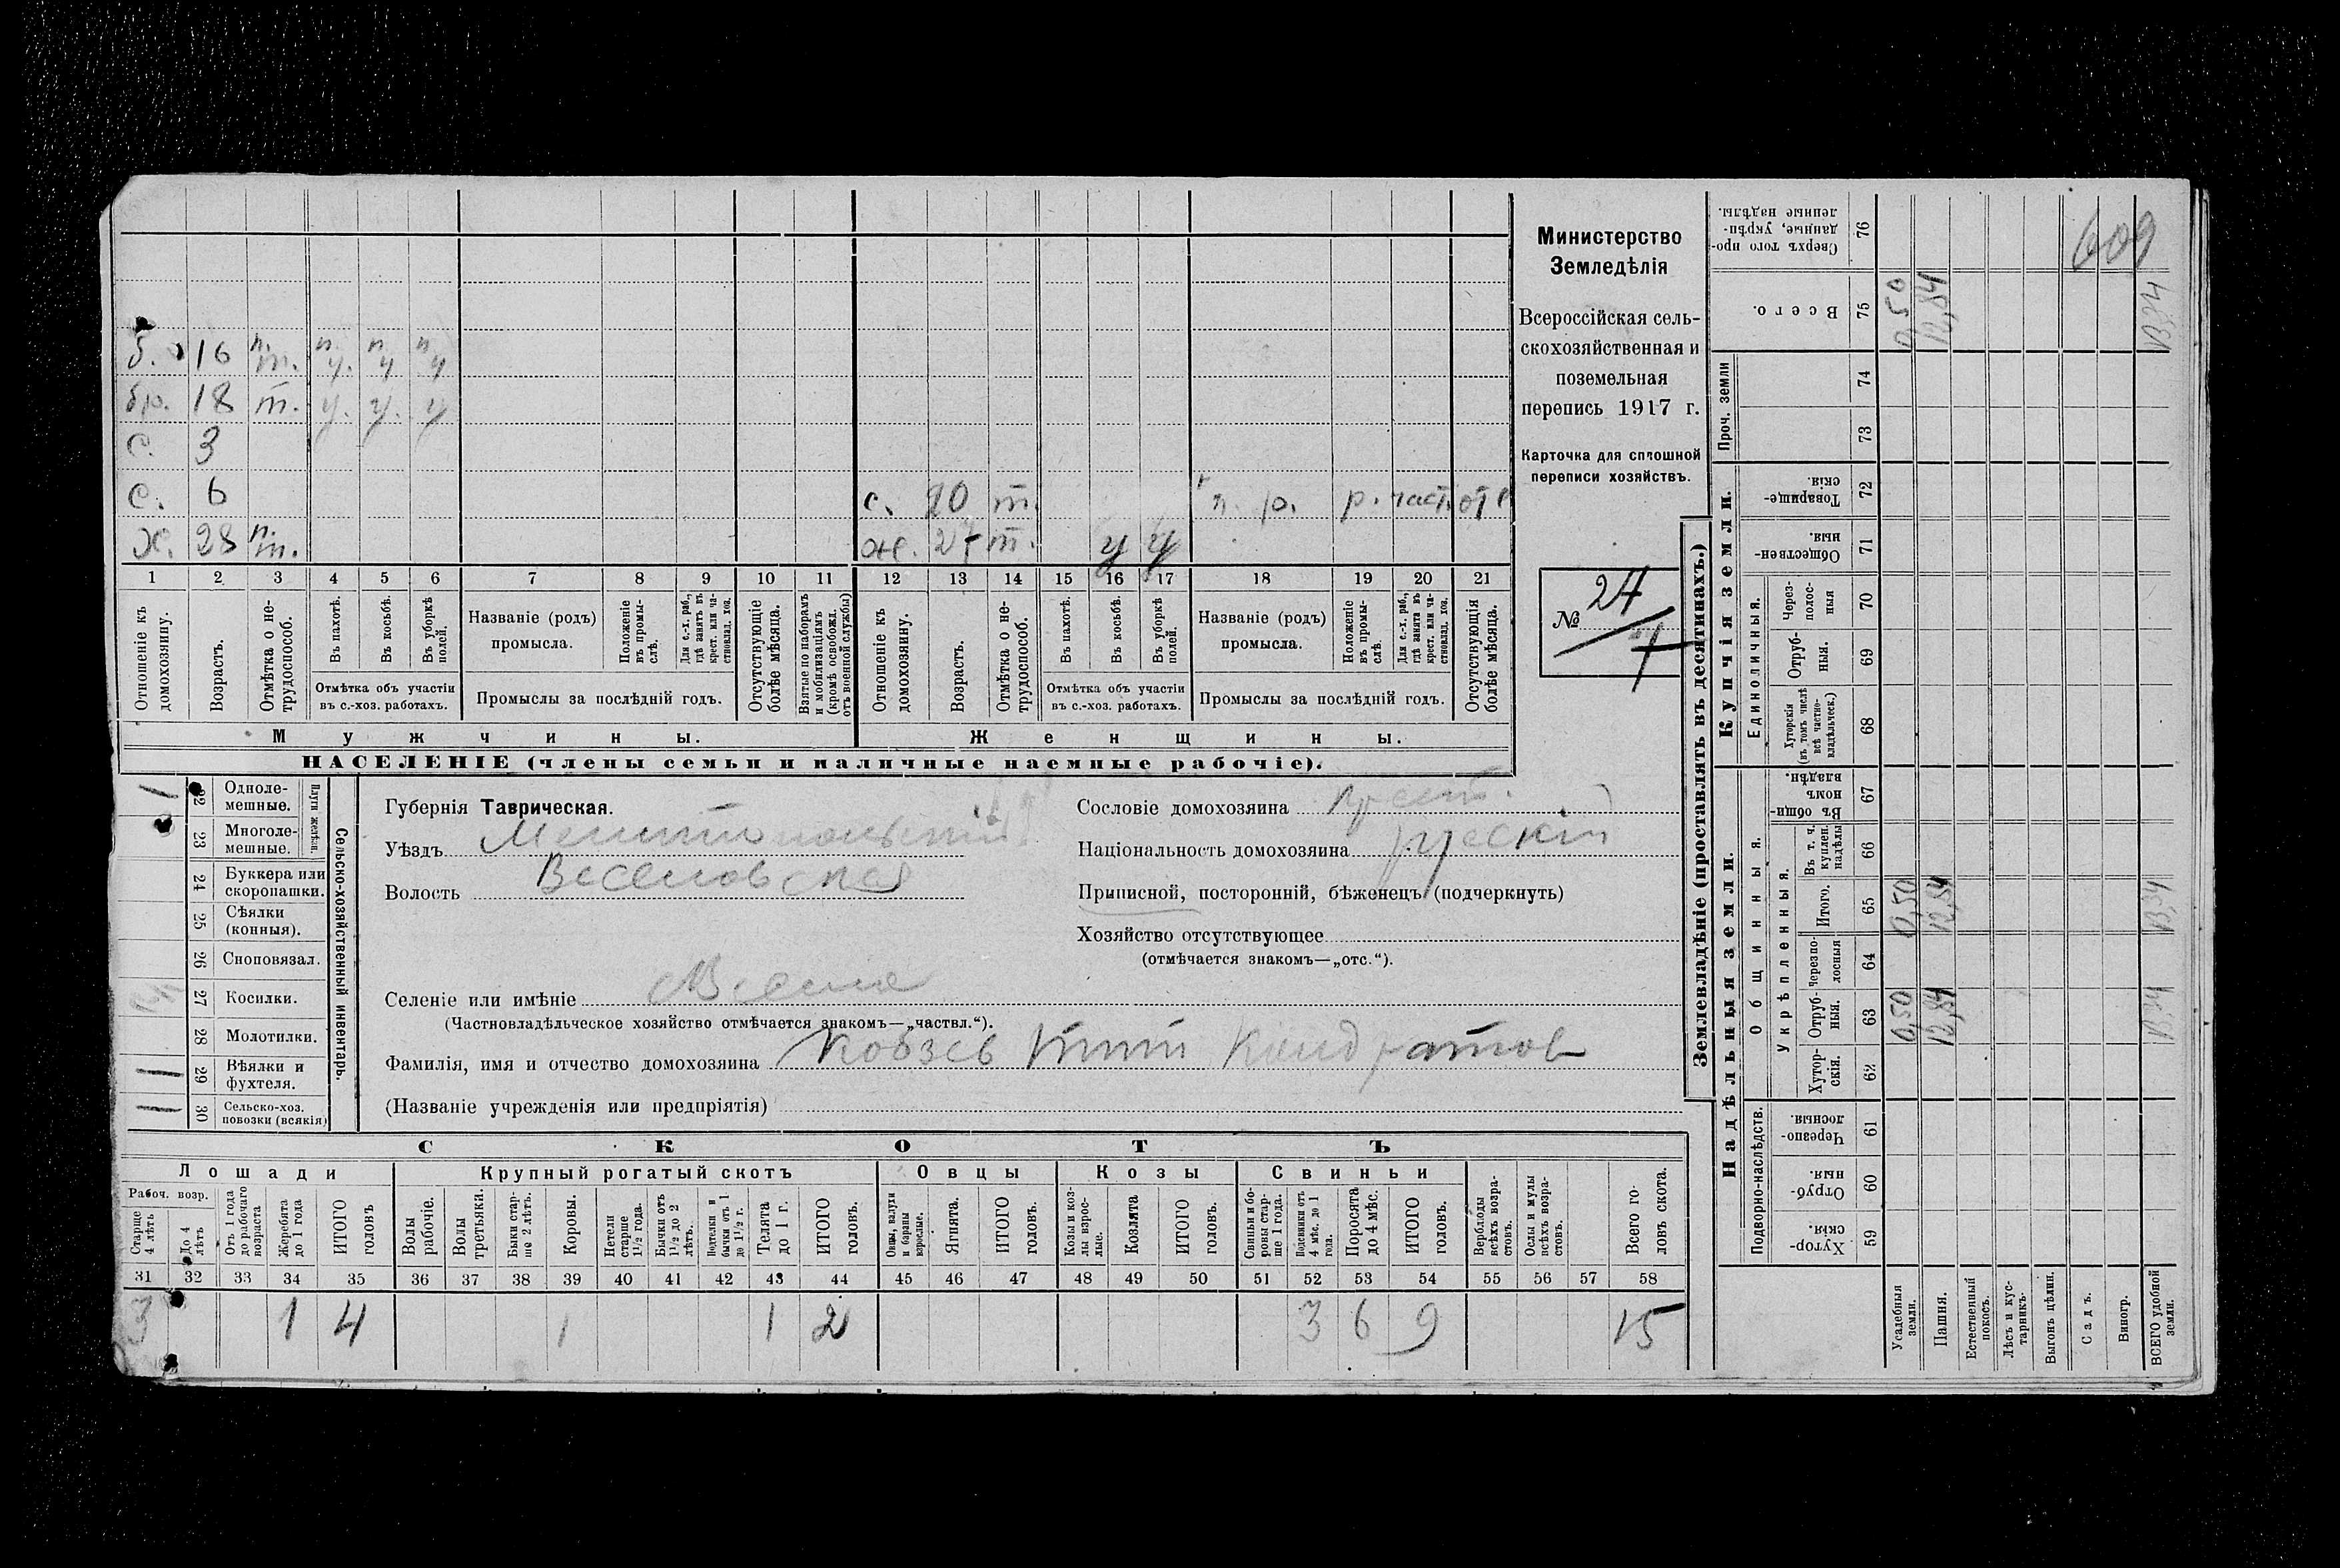 б. 16 п. т. п. у. п. у п у
бр. 18 т. у. у. у
с. 3
с. 6 с. 20 т. п. р. р. част. отс
х. 28 п. т. ж. 27 т. у у
1 2 3 4 5 6 7 8 9 10 11 12 13 14 15 16 17 18 19 20 21
Отношеніе къ домохозяину.
Возрастъ.
Отмѣтка о нетрудоспособ.
Въ пахотѣ.
Въ косьбѣ.
Въ уборкѣ полей.
Отмѣтка объ участіи въ с.-хоз. работахъ.
Названіе (родъ) промысла.
Положеніе въ промыслѣ.
Для с.-х. раб., гдѣ занятъ въ крест. или частновлад. хоз.
Промыслы за послѣдній годъ.
Отсутствующіе болѣе мѣсяца.
Взятые по наборамъ и мобилизаціямъ (кромѣ освобожд. отъ военной службы)
Отношеніе къ домохозяину.
Возрастъ.
Отмѣтка о нетрудоспособ.
Въ пахотѣ.
Въ косьбѣ.
Въ уборкѣ полей.
Отмѣтка объ участіи въ с.-хоз. работахъ.
Названіе (родъ) промысла.
Положеніе въ промыслѣ.
Для с.-х. раб., гдѣ занята въ крест. или частновлад. хоз.
Промыслы за послѣдній годъ.
Отсутствующія болѣе мѣсяца.
Мужчины. Женщины.
НАСЕЛЕНІЕ (члены семьи и наличные наемные рабочіе).
Министерство
Земледѣлія
Всероссійская сель-
скохозяйственная и
поземельная
перепись 1917 г.
Карточка для сплошной
переписи хозяйствъ.
№ 24
7
22 Одноле-мешные. 1
23 Многоле-мешные.
Плуги желѣзн.
24 Буккера или скоропашки.
25 Сѣялки (конныя).
26 Сноповязал.
27 Косилки.
28 Молотилки.
29 Вѣялки и фухтеля. 1
30 Сельско-хоз. повозки (всякія) 1
Сельско-хозяйственный инвентарь.
Губернія Таврическая.
Уѣздъ Мелитопольскій
Волость Веселовская
Сословіе домохозяина крест.
Національность домохозяина русскій
Приписной, посторонній, бѣженецъ (подчеркнуть)
Хозяйство отсутствующее
(отмѣчается знакомъ—„отс.“).
Селеніе или имѣніе
(Частновладѣльческое хозяйство отмѣчается знакомъ—„частвл.“).
Фамилія, имя и отчество домохозяина Кобзев Тит Кондратов
(Названіе учрежденія или предпріятія)
СКОТЪ
Лошади Крупный рогатый скотъ Овцы Козы Свиньи
Рабоч. возр.
Старше 4 лѣтъ
До 4 лѣтъ
Отъ 1 года до рабочаго возраста
Жеребята до 1 года
ИТОГО головъ
Волы рабочіе.
Волы третьяки.
Быки старше 2 лѣтъ.
Коровы.
Нетели старше 1 1/2 года.
Бычки отъ 1 1/2 до 2 лѣтъ.
Подтелки и бычки отъ 1 до 1 1/2 г.
Телята до 1 г.
ИТОГО головъ.
Овцы, валухи и бараны взрослые.
Ягнята.
ИТОГО головъ.
Козы и козлы взрослые.
Козлята
ИТОГО головъ.
Свиньи и боровы старше 1 года.
Подсвинки отъ 4 мѣс. до 1 года.
Поросята до 4 мѣс.
ИТОГО головъ.
Верблюды всѣхъ возрастовъ.
Ослы и мулы всѣхъ возрастовъ.
Всего головъ скота.
31 32 33 34 35 36 37 38 39 40 41 42 43 44 45 46 47 48 49 50 51 52 53 54 55 56 57 58
3 1 4 1 1 2 3 6 9 15
Землевладѣніе (проставлять въ десятинахъ.)
Надѣльныя земли. Купчія земли.
Проч. земли
Подворно-наслѣдств.
Общинныя.
Укрѣпленныя.
Единоличныя.
609
76 Сверхъ того проданные, укрѣпленные надѣлы.
75 Всего. 0,50 12,84 1334
74
73
72 Товарищескія.
71 Общественныя.
70 Черезполосныя
69 Отрубныя.
68 Хуторскія (въ томъ числѣ всѣ частновладѣльческ.)
67 Въ общинномъ владѣн.
66 Въ т. ч. куплен. надѣлы
65 Итого. 0,50 12,84 1334
64 Черезполосныя
63 Отрубныя. 0,50 12,84 1334
62 Хуторскія.
61 Черезполосныя.
60 Отрубныя.
59 Хуторскія.
Усадебныя земли.
Пашня.
Естественный покосъ.
Лѣсъ и кустарникъ.
Выгонъ цѣлин.
Садъ.
Виногр.
ВСЕГО удобной земли.